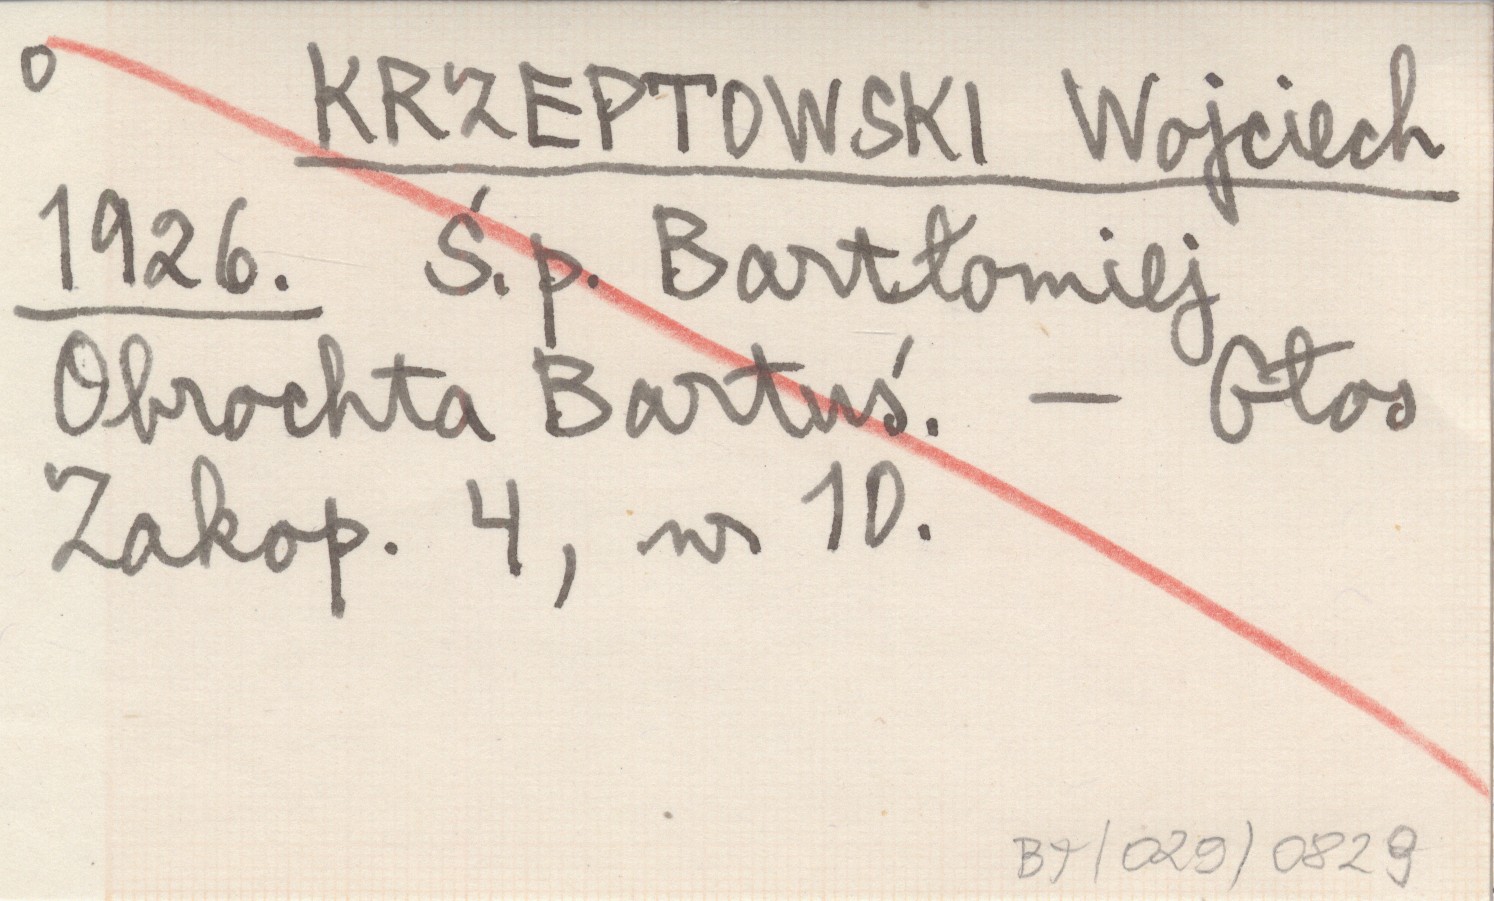 o KRZEPTOWSKI Wojciech
1926. Ś.p. Bartłomiej
Obrochta Bartuś. — Głos
Zakop. 4, nr 10.
BJ/029/0829